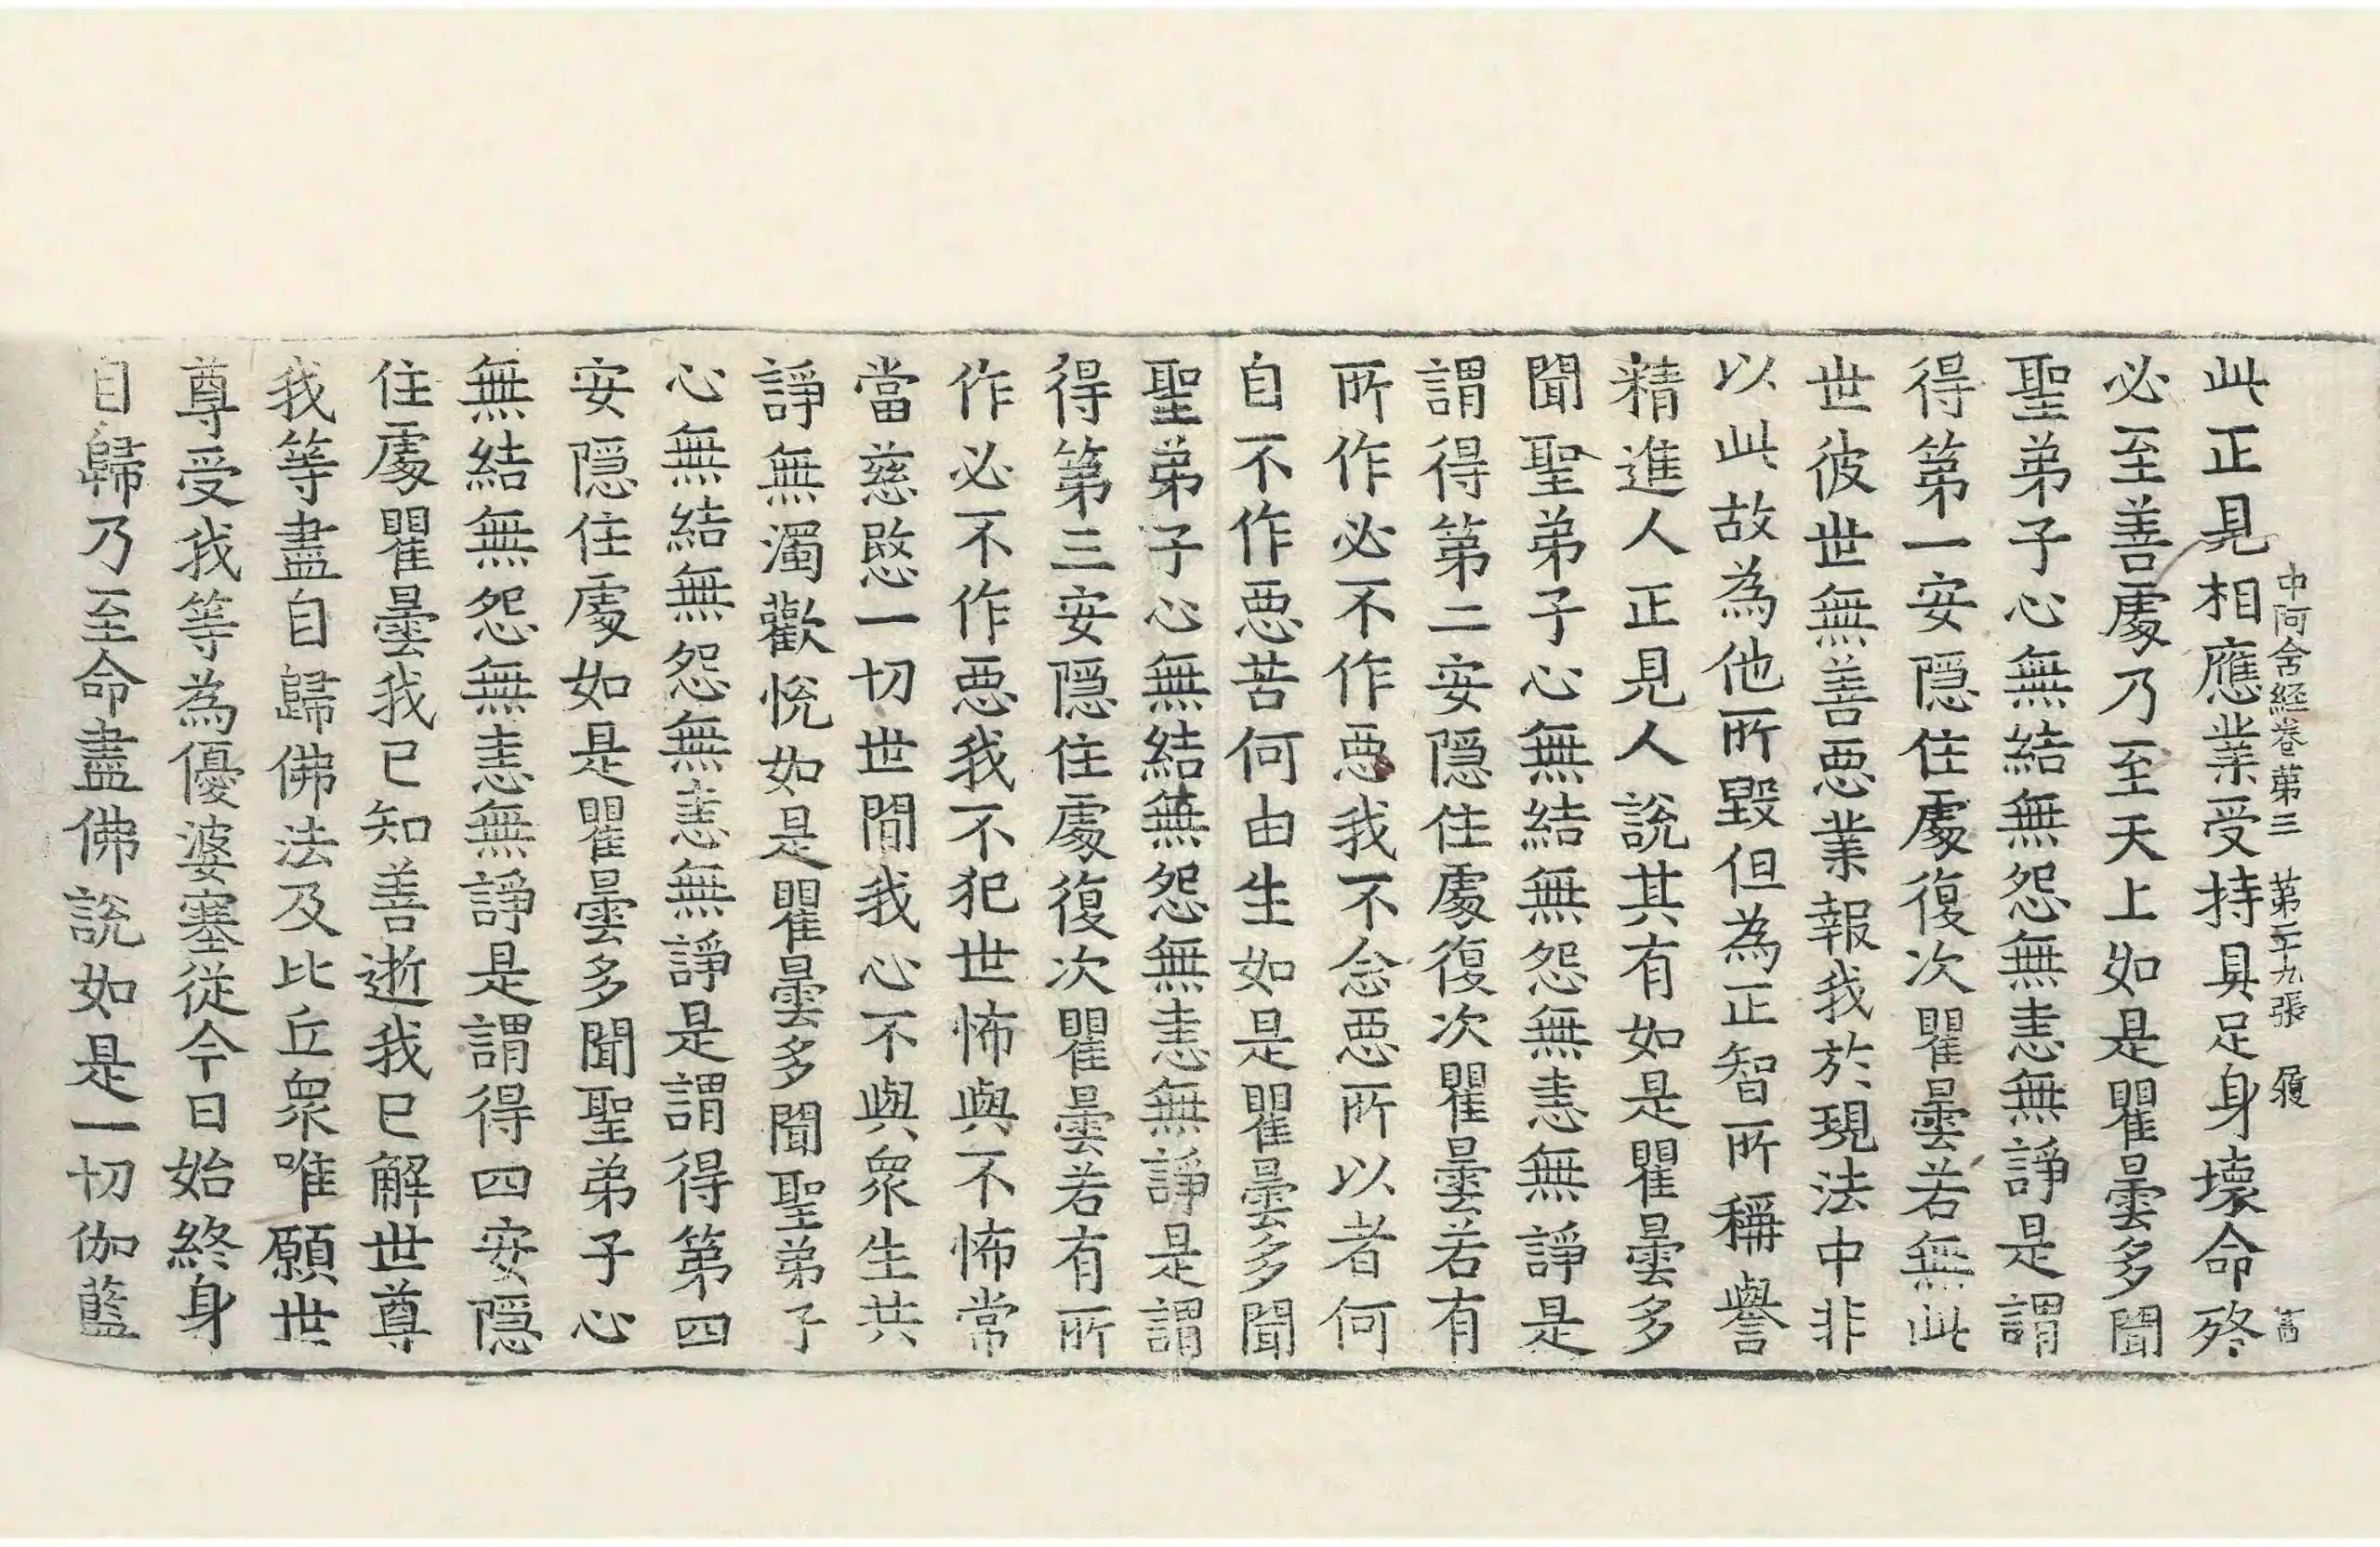 此正見相應業受持具足身壞命終
中阿含經卷第三 第二十九張 履
必至善處乃至天上如是瞿曇多聞
聖弟子心無結無怨無恚無諍是謂
得第一安隱住處復次瞿曇若無此
世彼世無善惡業報我於現法中非
以此故為他所毀但為正智所稱譽
精進人正見人說其有如是瞿曇多
聞聖弟子心無結無怨無恚無諍是
謂得第二安隱住處復次瞿曇若有
所作必不作惡我不念惡所以者何
自不作惡苦何由生如是瞿曇多聞
聖弟子心無結無怨無恚無諍是謂
得第三安隱住處復次瞿曇若有所
作必不作惡我不犯世怖與不怖常
當慈愍一切世間我心不與衆生共
諍無濁歡悅如是瞿曇多聞聖弟子
心無結無怨無恚無諍是謂得第四
安隱住處如是瞿曇多聞聖弟子心
無結無怨無恚無諍是謂得四安隱
住處瞿曇我已知善逝我已解世尊
我等盡自歸佛法及比丘衆唯願世
尊受我等為優婆塞從今日始終身
自歸乃至命盡佛說如是一切伽藍